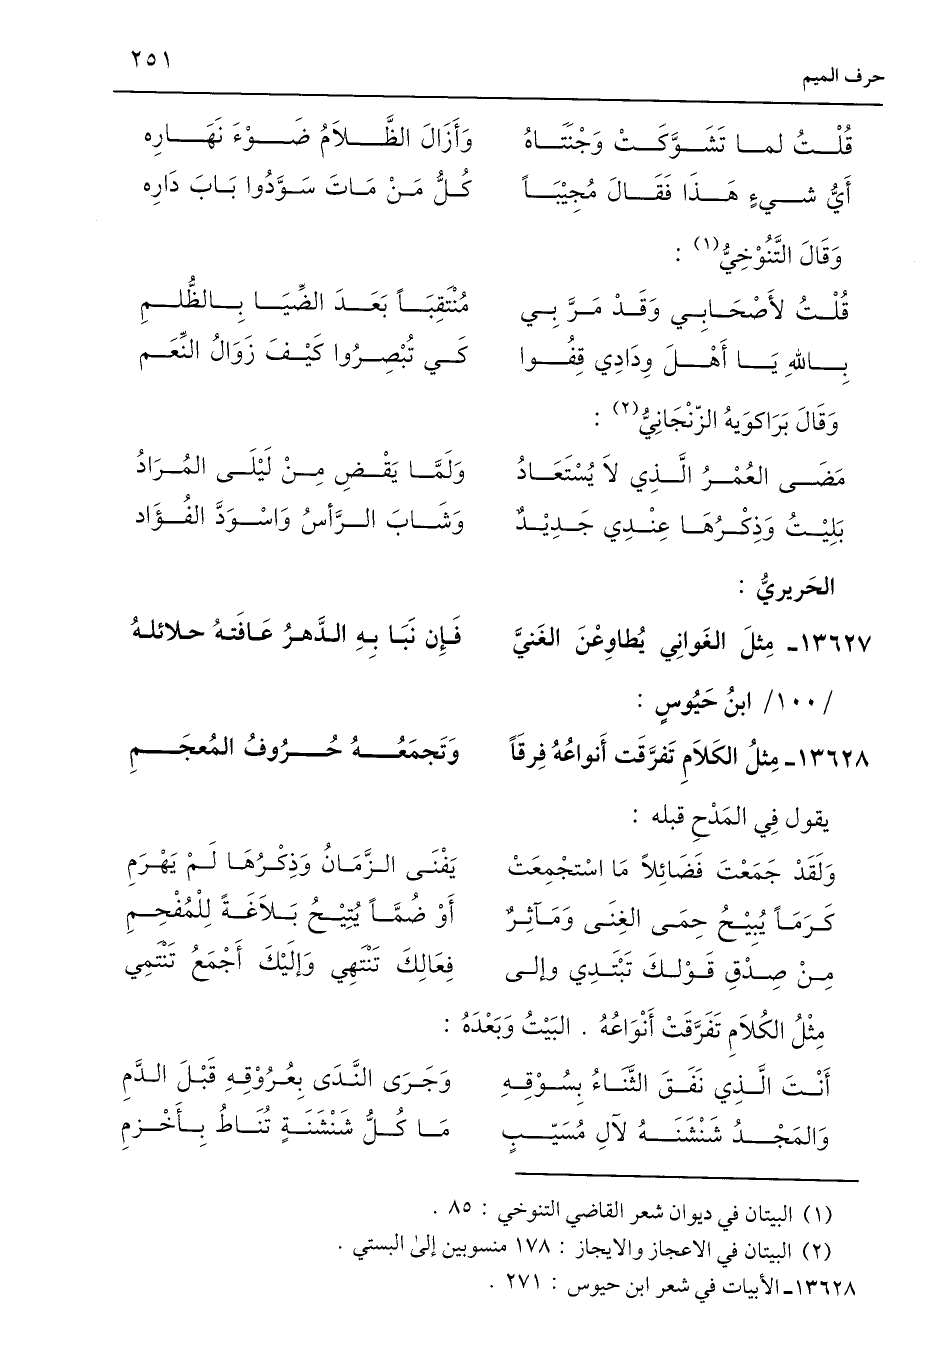 ٢٥١
حرف الميم
قُلْتُ لما تَشَوَّكَتْ وَجْنَتَاهُ وَأَزَالَ الظَّلاَمُ ضَوْءَ نَهَاره
أَيُّ شيءٍ هَذَا فَقَالَ مُجِيْبَاً كُلُّ مَنْ مَاتَ سَوَّدُوا بَابَ دَاره
وَقَالَ التَّنُوْخِيُّ(١) :
قُلْتُ لأَصْحَابي وَقَدْ مَرَّ بي مُنْتَقِبَاً بَعْدَ الضِّيَا بِالظُّلمِ
بِاللهِ يَا أَهْلَ وِدَادِي قِفُوا كَي تُبْصِرُوا كَيْفَ زَوَالُ النِّعَمِ
وَقَالَ بَرَاكويهُ الزِّنْجَانِيُّ(٢) :
مَضَى العُمْرُ الَّذِي لاَ يُسْتَعَادُ وَلَمَّا يَقْضِ مِنْ لَيْلَى المُرَادُ
بَلِيْتُ وَذِكْرُهَا عِنْدِي جَدِيْدٌ وَشَابَ الرَّأْسُ وَاسْوَدَّ الفُؤَاد
الحَريريُّ :
١٣٦٢٧ـ مِثلَ الغَواني يُطاوِعْنَ الغَنيَّ فَإِن نَبَا بِهِ الدَّهرُ عَافَتهُ حلائلهُ
/١٠٠/ ابنُ حَيُوسٍ :
١٣٦٢٨ـ مِثلُ الكَلاَمِ تَفرَّقَت أَنواعُهُ فِرقَاً وَتَجمَعُهُ حُرُوفُ المُعجَمِ
يقول فِي المَدْحِ قبله :
وَلَقَدْ جَمَعْتَ فَضَائِلاً مَا اسْتُجمِعَتْ يَفْنَى الزَّمَانُ وَذِكْرُهَا لَمْ يَهْرَمِ
كَرَمَاً يُبِيْحُ حِمَى الغِنَى وَمَآثِرٌ أَوْ ضُمَّاً يُتِيْحُ بَلاَغَةً لِلْمُفْحِمِ
مِنْ صِدْقِ قَوْلكَ تَبْتَدِي وإلى فِعَالِكَ تَنْتَهِي وَإِلَيْكَ أَجْمَعُ تَنْتَمِي
مِثْلُ الكُلاَمِ تَفَرَّقَتْ أَنْوَاعُهُ . البَيْتُ وَبَعْدَهُ :
أَنْتَ الَّذِي نَفَقَ الثَّنَاءُ بِسُوْقِهِ وَجَرَى النَّدَى بِعُرُوْقِهِ قَبْلَ الدَّمِ
وَالمَجْدُ شَنْشَنَهُ لآلِ مُسَيَّبٍ مَا كُلُّ شَنْشَنَةٍ تُنَاطُ بِأَخْزمِ
(١) البيتان في ديوان شعر القاضي التنوخي : ٨٥ .
(٢) البيتان في الاعجاز والايجاز : ١٧٨ منسوبين إلى البستي .
١٣٦٢٨ـ الأبيات في شعر ابن حيوس : ٢٧١ .